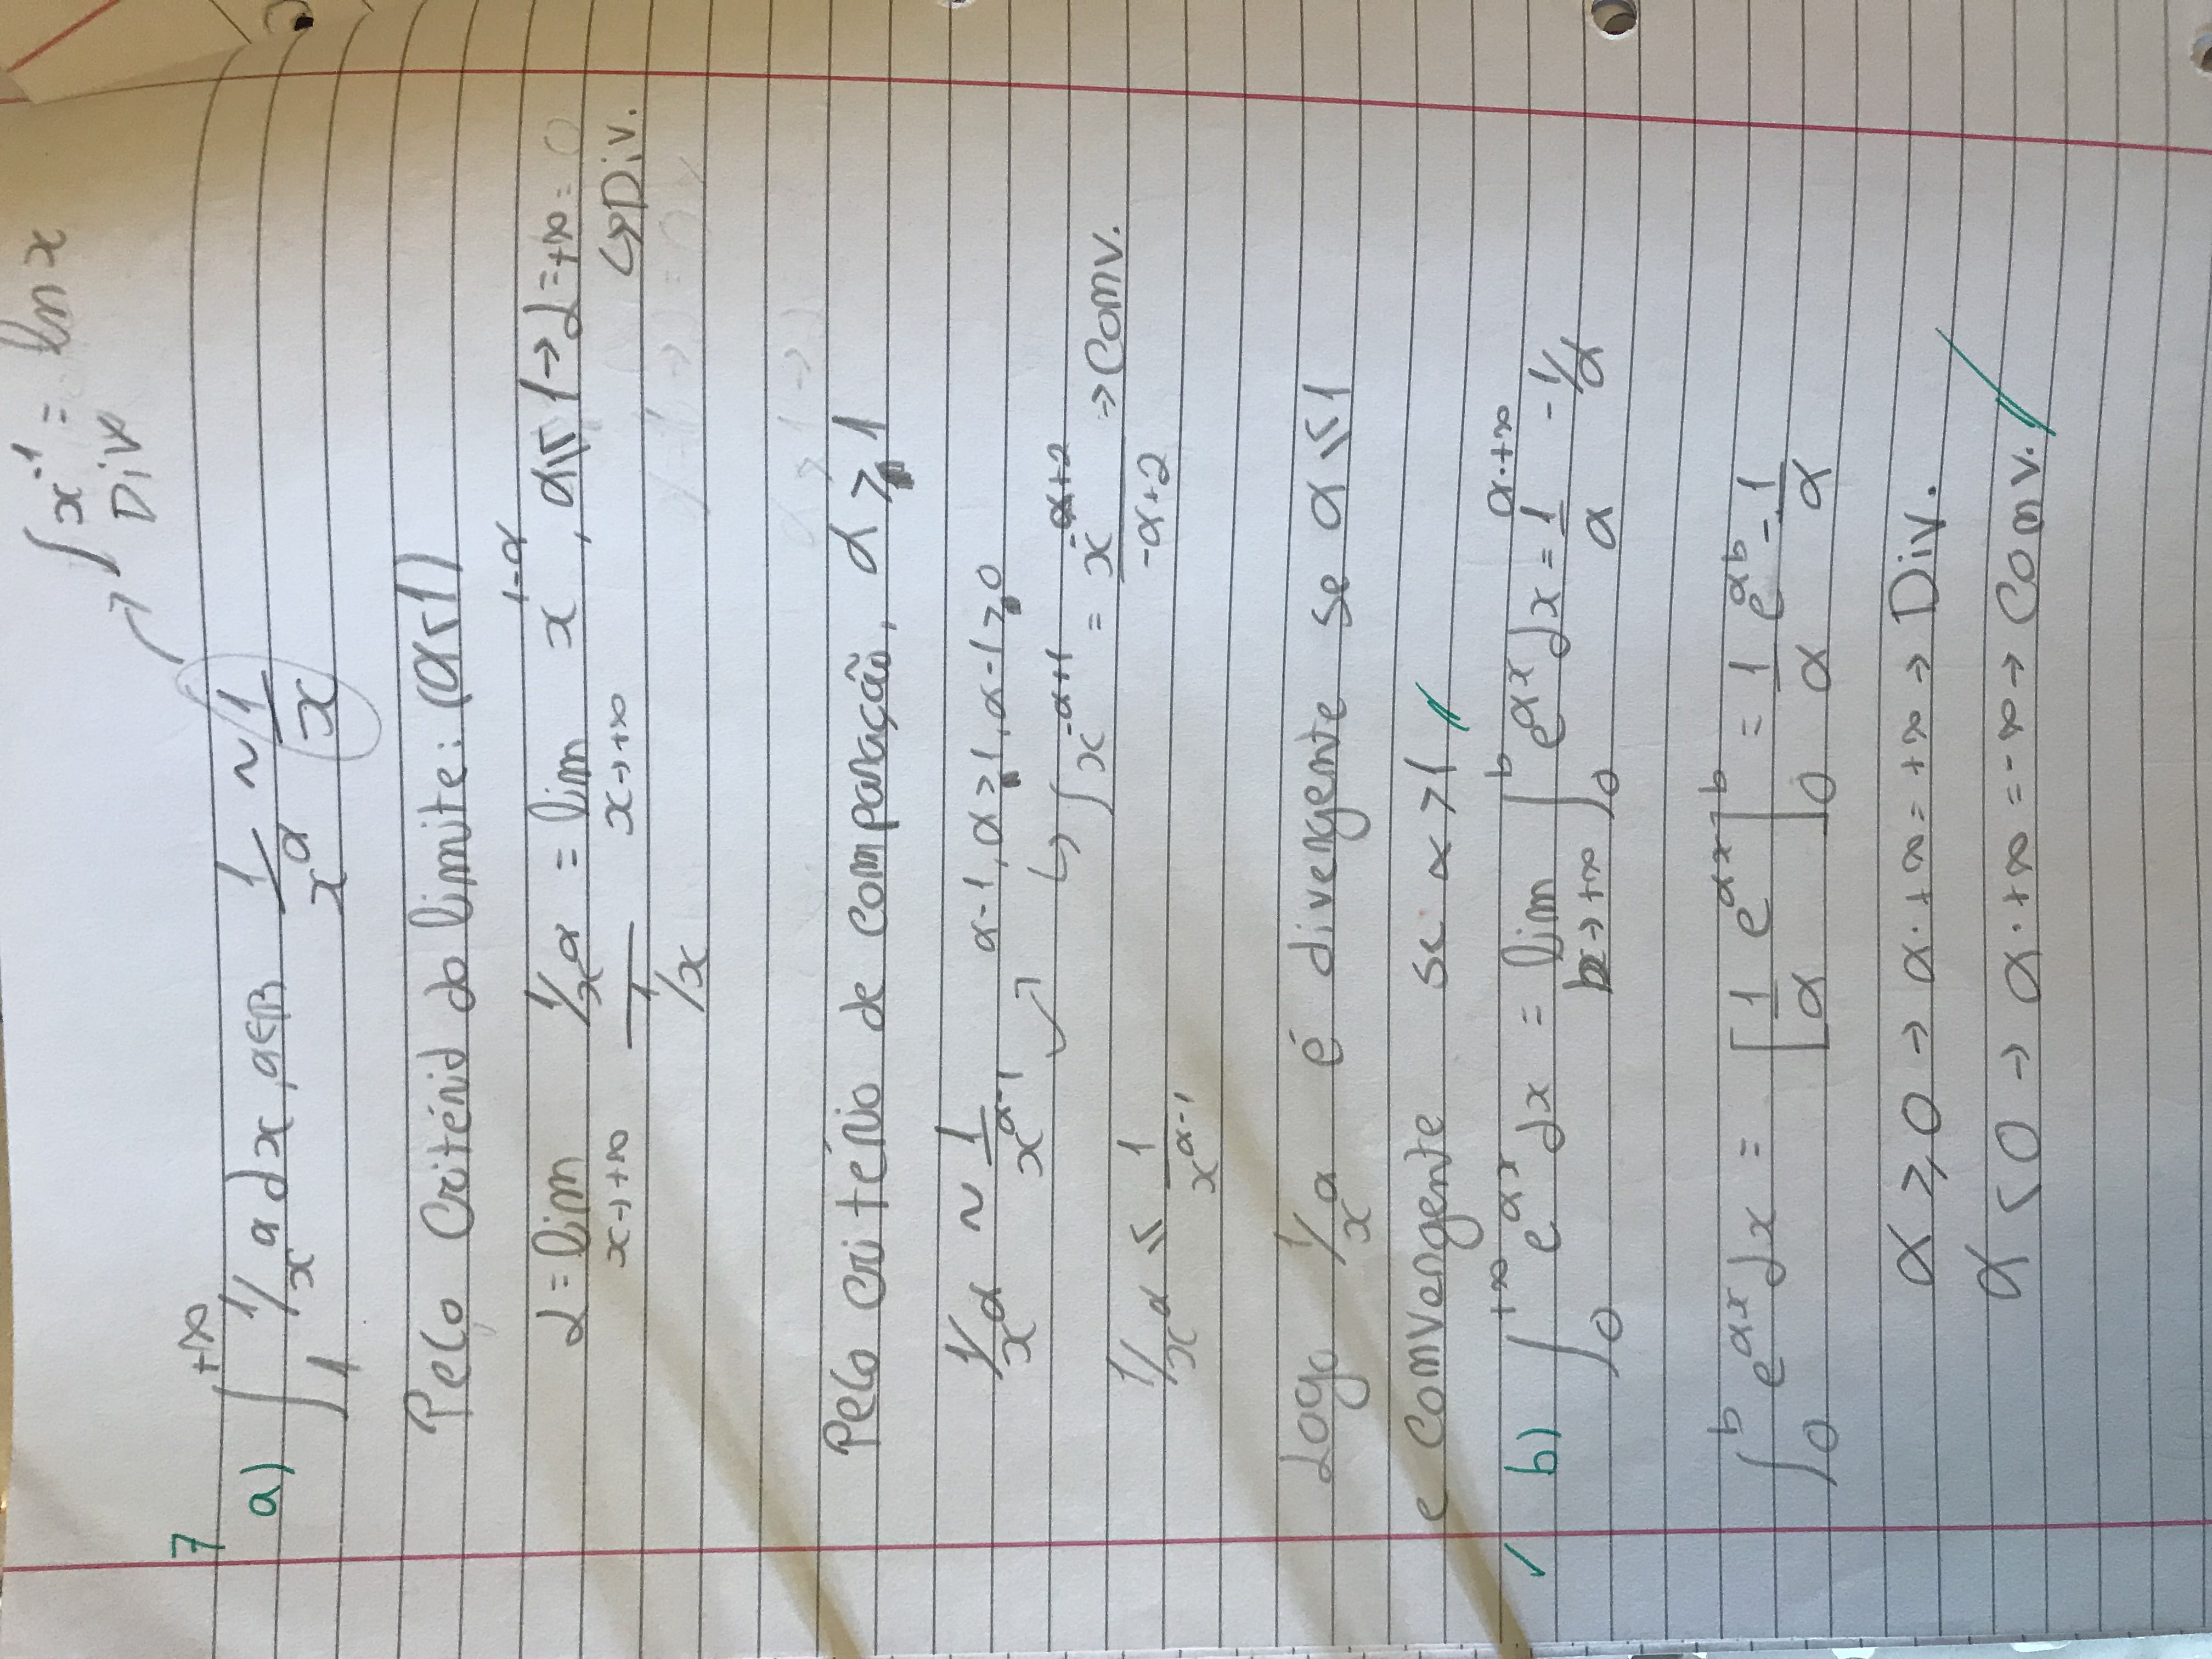 ∫ x⁻¹ = ln x
Div
7
a) ∫₁^{+∞} 1/x^α dx, α∈ℝ 1/x^α ~ 1/x
Pelo Critério do limite: (α<1)
L = lim_{x→+∞} (1/x^α)/(1/x) = lim_{x→+∞} x^{1-α}, α≤1 → L = +∞
↪ Div.
Pelo critério de comparação, α > 1
1/x^α ~ 1/x^{α-1} α-1, α>1, α-1>0
↪ ∫ x^{-α+1} = x^{-α+2}/(-α+2) → Conv.
1/x^α ≤ 1/x^{α-1}
Logo 1/x^α é divergente se α ≤ 1
e convergente se α > 1 //
✓ b) ∫₀^{+∞} e^{αx} dx = lim_{b→+∞} ∫₀^b e^{αx} dx = 1/α ^{α·+∞} - 1/α
∫₀^b e^{αx} dx = [1/α e^{αx}]₀^b = 1/α e^{αb} - 1/α
α ≥ 0 → α·+∞ = +∞ → Div.
α < 0 → α·+∞ = -∞ → Conv. //